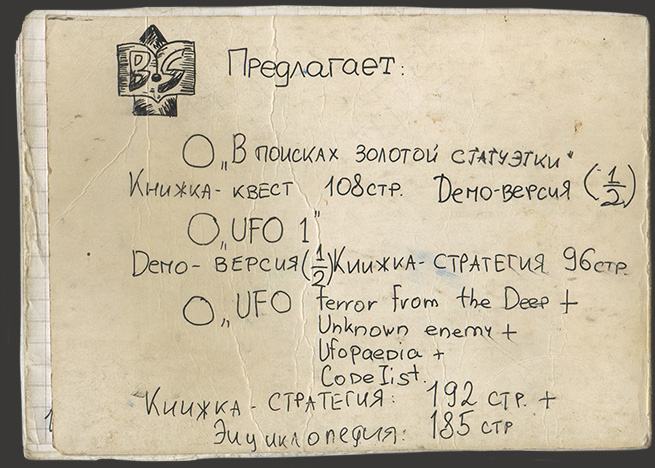 B.S
Предлагает:
О „В поисках золотой статуэтки"
Книжка-квест 108 стр. Демо-версия (1/2)
О „UFO 1"
Демо-версия (1/2) Книжка-стратегия 96 стр.
О „UFO Terror from the Deep +
Unknown enemy +
Ufopaedia +
Codelist.
Книжка-стратегия: 192 стр. +
Энциклопедия: 185 стр